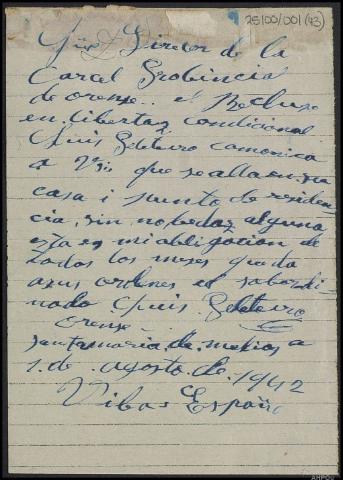 25/00/001 (43)
Sñor Director de la
Carcel Probincia
de orense.. el Recluso
en libertaz condicional
Luis comonica
a Vsi que se alla en su
casa i punto de residen
cia, sin nobedaz alguna
esta es mi abligacion de
todos los meses queda
asus ordenes el sabordi
nado Luis
orense
santamaria de melias a
1. de. agosto de. 1942
Viba España
AHPOU